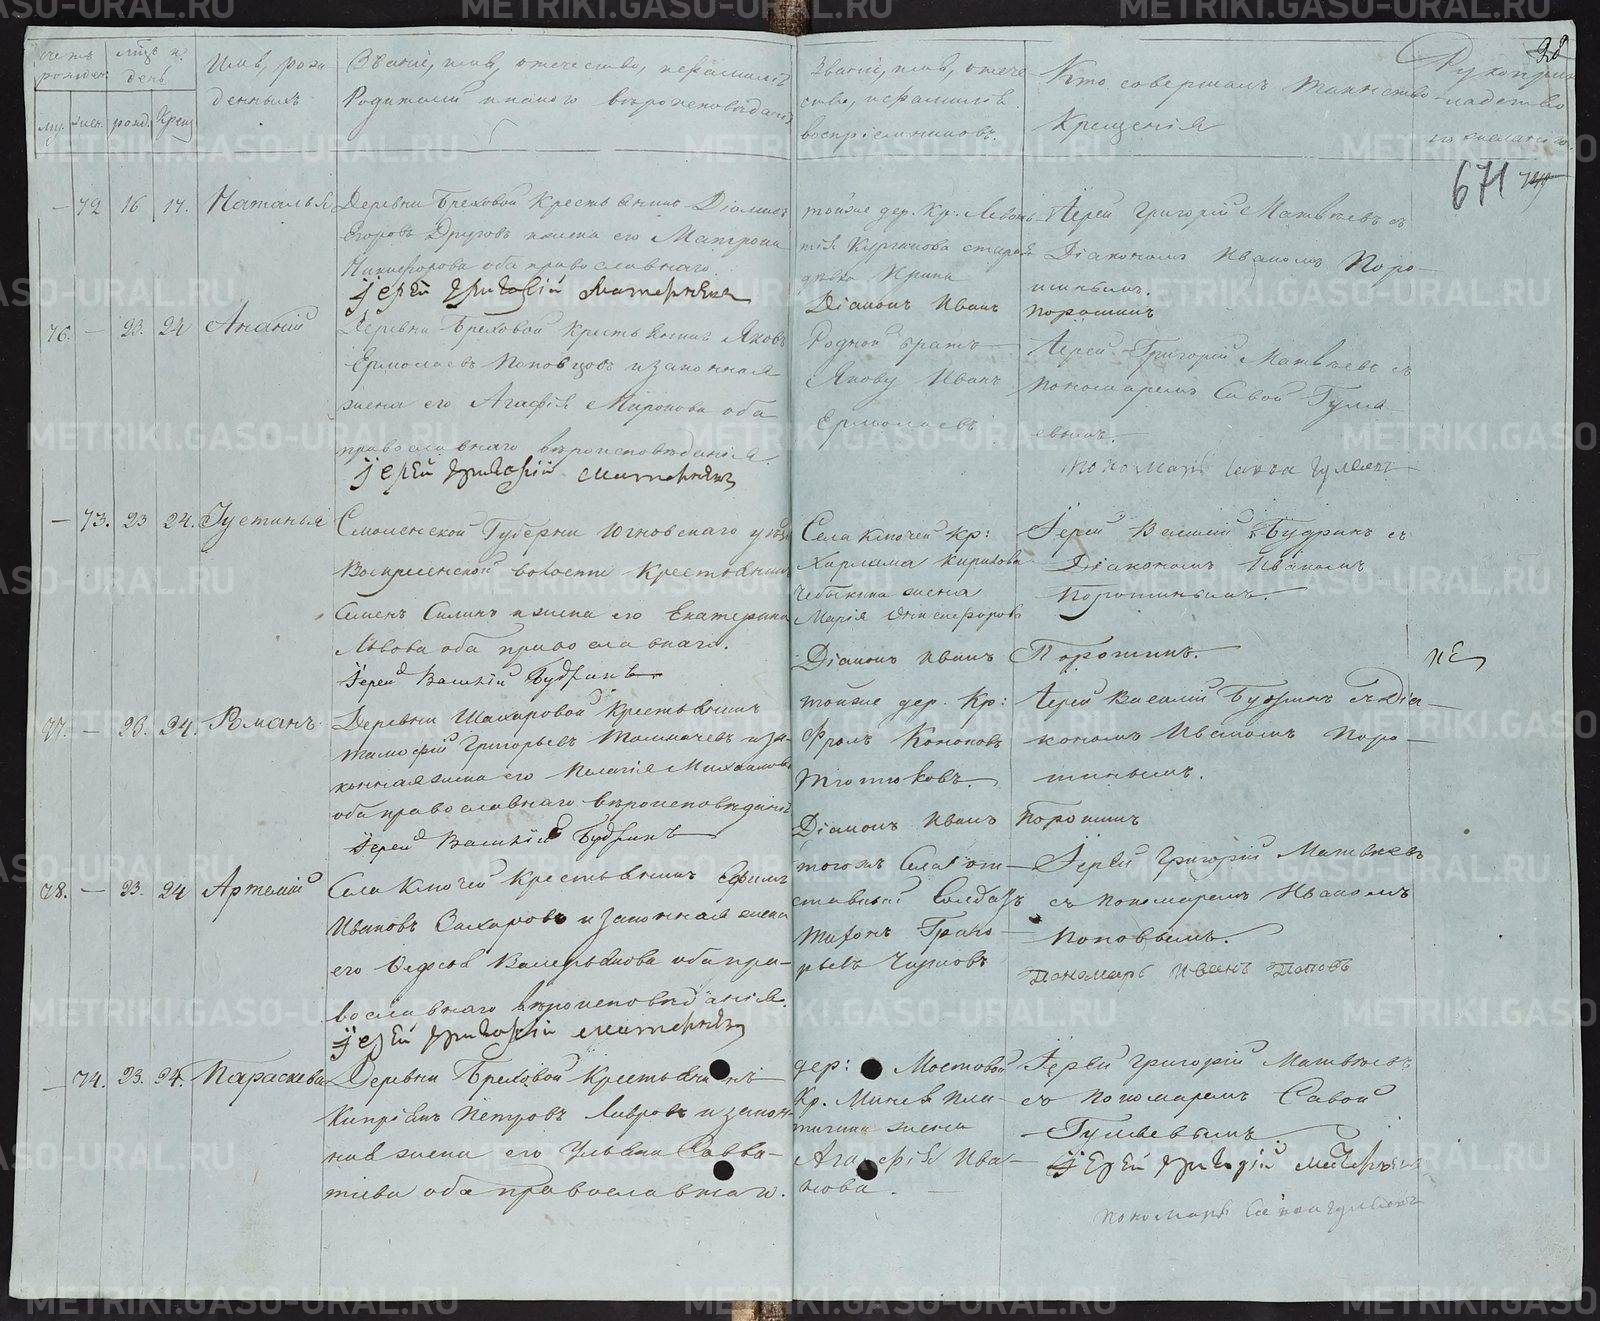 Счетъ рожден.
мѣсяцъ и день
му.
жен.
рожд.
Крещ
Имя, рож-
денныхъ
Званіе, имя, отечество, и фамилія
Родителей и какого вѣроисповѣданія
Званіе, имя, отече-
ство, и фамилія
воспріемниковъ.
Кто совершалъ таинство
Крещенія
Рукоприк-
ладство
по желанію.
671
— 72 16 17. Наталья
Деревни Бреховой Крестьянинъ
Егоровъ Друговъ и жена его Матрона
Никифорова оба православнаго
Іерей Григорій Матвѣевъ
тойже дер. Кр.
дѣвка Ирина
Діаконъ Иванъ Порошинъ
Іерей Григорій Матвѣевъ съ
Діакономъ Иваномъ Поро-
шинымъ.
76. — 23. 24 Ананій
Деревни Бреховой Крестьянинъ Яковъ
Ермолаевъ Поповцовъ и законная
жена его Агафія Миронова оба
православнаго вѣроисповѣданія.
Іерей Григорій Матвѣевъ
Родной братъ
Якову Иванъ
Ермолаевъ
Іерей Григорій Матвѣевъ съ
пономаремъ Савой Гуля-
евымъ.
пономарь Савва Гуляевъ
— 73. 23 24. Іустинья
Смоленской Губерни Югновскаго уѣзда
Воскресенской волости Крестьянинъ
Семенъ Силинъ и жена его Екатерина
Львова оба православнаго.
Іерей Василій Будринъ
Села Ключей Кр:
Харлама Кирилова
Чебыкина жена
Марія Онисифорова
Діаконъ Иванъ Порошинъ.
Іерей Василій Будринъ съ
Діакономъ Иваномъ
Порошинымъ.
77. — 23. 24. Романъ
Деревни Шахаровой Крестьянинъ
Тимофей Григорьевъ Толмачевъ и за-
конная жена его Пелагія Михайлова
оба православнаго вѣроисповѣданія
Іерей Василій Будринъ
тойже дер. Кр:
Фролъ Кононовъ
Тютюковъ.
Діаконъ Иванъ Порошинъ
Іерей Василій Будринъ съ Діа-
кономъ Иваномъ Поро-
шинымъ.
78. — 23. 24 Артемій
Села Ключей Крестьянинъ Ефимъ
Ивановъ Захаровъ и законная жена
его Федосья Валерьянова оба пра-
вославнаго вѣроисповѣданія.
Іерей Григорій Матвѣевъ
тогожъ Села от-
ставный Солдатъ
Тихонъ Григо-
рьевъ Чирковъ
Іерей Григорій Матвѣевъ
съ пономаремъ Иваномъ
Поповымъ.
Пономарь Иванъ Поповъ
— 74. 23. 24. Параскева
Деревни Бреховой Крестьянинъ
Кипріянъ Петровъ Лавровъ и закон-
ная жена его Ульяна Савва-
тиева оба православнаго.
дер: Мостовой
Кр.
жена
Агафія Ива-
нова.
Іерей Григорій Матвѣевъ
съ пономаремъ Савой
Гуляевымъ
Іерей Григорій Матвѣевъ
пономарь Савва Гуляевъ
METRIKI.GASO-URAL.RU